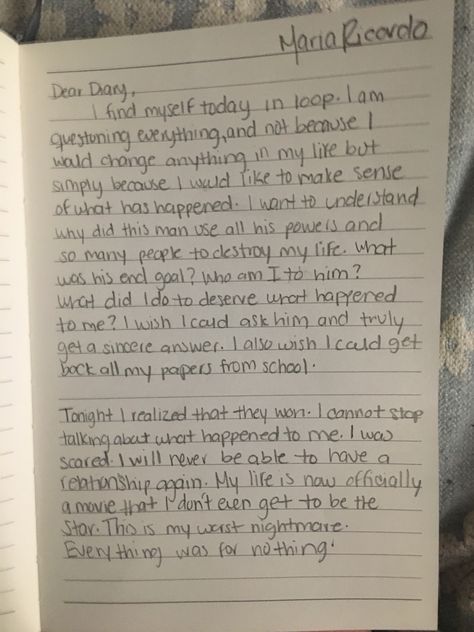 Maria Ricardo
Dear Diary,
I find myself today in loop. I am
questioning everything, and not because I
would change anything in my life but
simply because I would like to make sense
of what has happened. I want to understand
why did this man use all his powers and
so many people to destroy my life. What
was his end goal? Who am I to him?
What did I do to deserve what happened
to me? I wish I could ask him and truly
get a sincere answer. I also wish I could get
back all my papers from school.
Tonight I realized that they won. I cannot stop
talking about what happened to me. I was
scared. I will never be able to have a
relationship again. My life is now officially
a movie that I don't even get to be the
star. This is my worst nightmare.
Everything was for nothing.